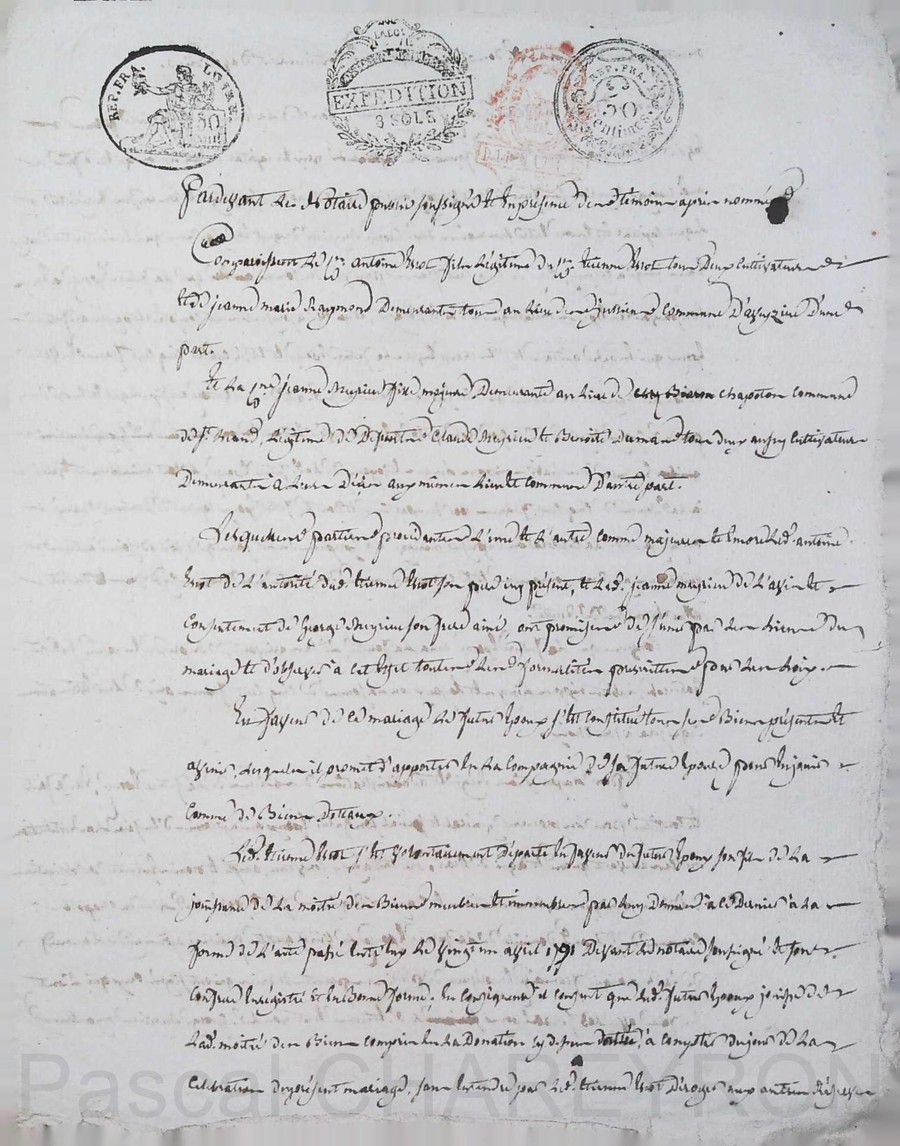 REP. FRA. LOIRE
50
CENT.
EXPEDITION
8 SOLS
REP. FRA.
50
Centimes
Pardevant Le Notaire public soussigné et En présence des temoins après nommés
Comparoissent Le Sr. antoine fils Légitime du Sr. Etienne tous Deux Cultivateurs
et de jeanne marie Raymond Demeurants tous au Lieu de Commune D'une
part.
Et La jeanne Meyrieu fille majeure Demeurante au Lieu de chapoton commune
de St. Légitime De Defunts Claude Meyrieu et Benoite tous deux aussy Cultivateurs
Demeurants a Leurs Décès aux mêmes Lieu et commune D'autre part.
Lesquelles parties procédantes L'une et L'autre comme majeures et Encore Led. antoine
De L'autorité dud. Etienne son pere icy présent, et Lad. jeanne meyrieu De L'avis et
Consentement De George Meyrieu son frere ainé, ont promis De S'unir par Les Liens Du
mariage et d'observer a Cet Effet toutes Les formalités prescrittes par Les Loix.
En faveur De Ce mariage Le futur Epoux S'est Constitué tous ses Biens présents Et
avenir, Lesquels il promet d'apporter En La Compagnie De sa future Epouse pour En jouir
Comme De Biens Dotaux.
Led. Etienne S'est Volontairement Départi En faveur Du futur Epoux son fils De La
jouissance De La moitié des Biens meubles et immeubles par Luy Donnés a ce Dernier a La
forme De L'acte passé Entr'eux Le vingt un avril 1791 Devant Le notaire soussigné et son
Confrere Enregistré Et En Bonne forme; En Conséquence il consent que Led. futur Epoux jouisse De
Lad. moitié des Biens compris En La Donation cy dessus dattée, a compter Du jour De La
Celebration Du présent mariage, sans Entendre par Led. Etienne Déroger aux autres Réserves
Pascal CHAREYRON